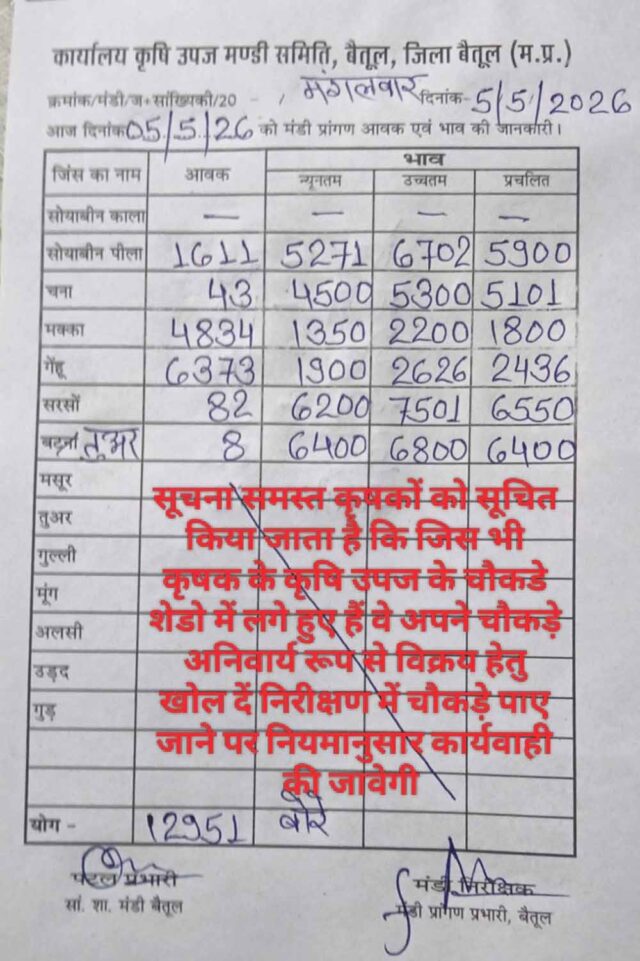 कार्यालय कृषि उपज मण्डी समिति, बैतूल, जिला बैतूल (म.प्र.)
क्रमांक/मंडी/ज+सांख्यिकी/20 - , मंगलवार दिनांक- 5/5/2026
आज दिनांक 05/5/26 को मंडी प्रांगण आवक एवं भाव की जानकारी।
जिंस का नाम आवक भाव
न्यूनतम उच्चतम प्रचलित
सोयाबीन काला — — — —
सोयाबीन पीला 1611 5271 6702 5900
चना 43 4500 5300 5101
मक्का 4834 1350 2200 1800
गेंहू 6373 1900 2626 2436
सरसों 82 6200 7501 6550
तुअर 8 6400 6800 6400
मसूर
तुअर
गुल्ली
मूंग
अलसी
उड़द
गुड़
सूचना समस्त कृषकों को सूचित
किया जाता है कि जिस भी
कृषक के कृषि उपज के चौकडे
शेडो में लगे हुए हैं वे अपने चौकड़े
अनिवार्य रूप से विक्रय हेतु
खोल दें निरीक्षण में चौकड़े पाए
जाने पर नियमानुसार कार्यवाही
की जावेगी
योग - 12951 बोरे
प्रभारी
सां. शा. मंडी बैतूल
मंडी निरीक्षक
मंडी प्रांगण प्रभारी, बैतूल